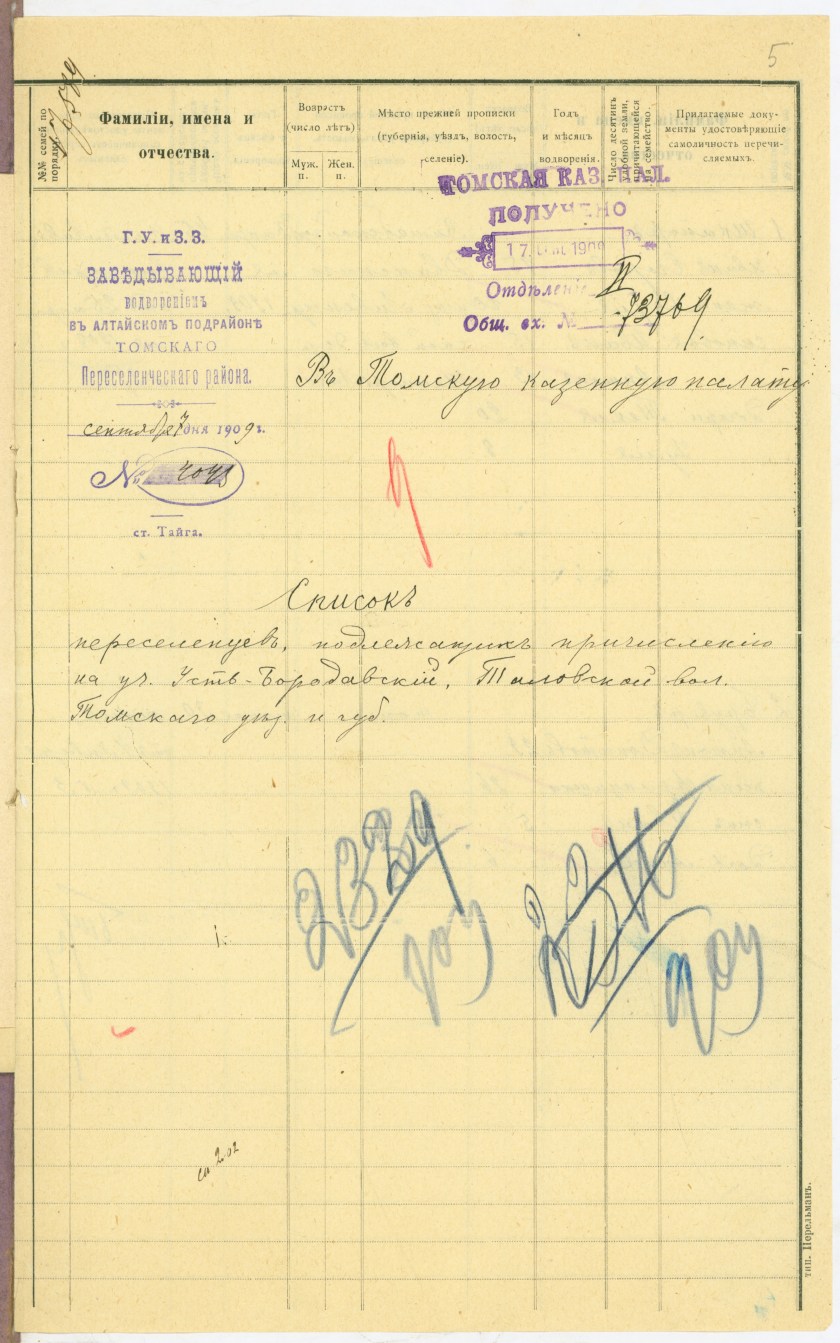 5
№№ семей по порядку.
Фамиліи, имена и
отчества.
Возрастъ
(число лѣтъ)
Муж.
п.
Жен.
п.
Мѣсто прежней прописки
(губернія, уѣздъ, волость,
селеніе).
Годъ
и мѣсяцъ
водворенія.
Число десятинъ
удобной земли,
причитающейся
на семейство.
Прилагаемые доку-
менты удостовѣряющіе
самоличность перечи-
сляемыхъ.
ТОМСКАЯ КАЗ. ПАЛ.
ПОЛУЧЕНО
17 1909
Отдѣленіе II
Общ. вх. № 73769
Г. У. и З. З.
ЗАВѢДЫВАЮЩІЙ
водвореніемъ
ВЪ АЛТАЙСКОМЪ ПОДРАЙОНѢ
ТОМСКАГО
Переселенческаго района.
сентября 7 дня 1909 г.
№ 4048
ст. Тайга.
Въ Томскую казенную палату
Списокъ
переселенцевъ, подлежащихъ причисленію
на уч. Усть-Бородавскій, Таловской вол.
Томскаго уѣзд. и губ.
2339
тип. Перельманъ.